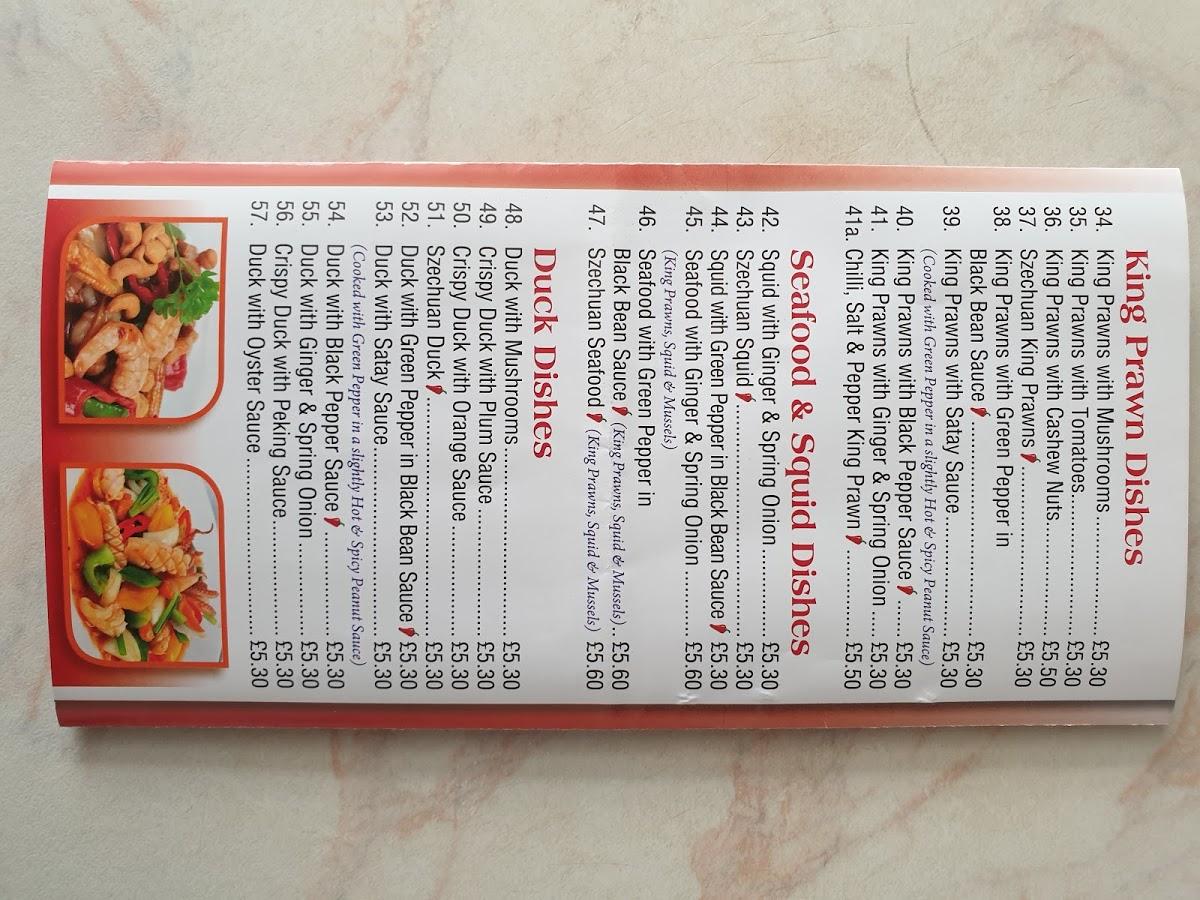 King Prawn Dishes
34. King Prawns with Mushrooms .................... £5.30
35. King Prawns with Tomatoes ..................... £5.30
36. King Prawns with Cashew Nuts ................. £5.50
37. Szechuan King Prawns .......................... £5.30
38. King Prawns with Green Pepper in
Black Bean Sauce ................................ £5.30
39. King Prawns with Satay Sauce ................. £5.30
(Cooked with Green Pepper in a slightly Hot & Spicy Peanut Sauce)
40. King Prawns with Black Pepper Sauce ..... £5.30
41. King Prawns with Ginger & Spring Onion ..... £5.30
41a. Chilli, Salt & Pepper King Prawn ............ £5.50
Seafood & Squid Dishes
42. Squid with Ginger & Spring Onion ............ £5.30
43. Szechuan Squid ................................ £5.30
44. Squid with Green Pepper in Black Bean Sauce £5.30
45. Seafood with Ginger & Spring Onion ......... £5.60
(King Prawns, Squid & Mussels)
46. Seafood with Green Pepper in
Black Bean Sauce (King Prawns, Squid & Mussels) .. £5.60
47. Szechuan Seafood (King Prawns, Squid & Mussels) £5.60
Duck Dishes
48. Duck with Mushrooms ........................... £5.30
49. Crispy Duck with Plum Sauce .................. £5.30
50. Crispy Duck with Orange Sauce ............... £5.30
51. Szechuan Duck ................................. £5.30
52. Duck with Green Pepper in Black Bean Sauce £5.30
53. Duck with Satay Sauce ......................... £5.30
(Cooked with Green Pepper in a slightly Hot & Spicy Peanut Sauce)
54. Duck with Black Pepper Sauce ................ £5.30
55. Duck with Ginger & Spring Onion ............. £5.30
56. Crispy Duck with Peking Sauce ............... £5.30
57. Duck with Oyster Sauce ....................... £5.30